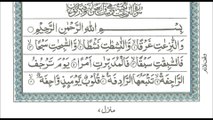 بِسْمِ اللّٰهِ الرَّحْمٰنِ الرَّحِيْمِ
وَالنّٰزِعٰتِ غَرْقًا ۙ وَّالنّٰشِطٰتِ نَشْطًا ۙ وَّالسّٰبِحٰتِ سَبْحًا ۙ
فَالسّٰبِقٰتِ سَبْقًا ۙ فَالْمُدَبِّرٰتِ اَمْرًا ۘ يَوْمَ تَرْجُفُ
الرَّاجِفَةُ ۙ تَتْبَعُهَا الرَّادِفَةُ ؕ قُلُوْبٌ يَّوْمَئِذٍ وَّاجِفَةٌ ۙ
منزل٧